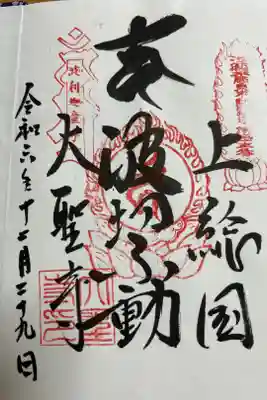 上総国
奉
波切不動
大聖寺
令和六年十二月二十九日